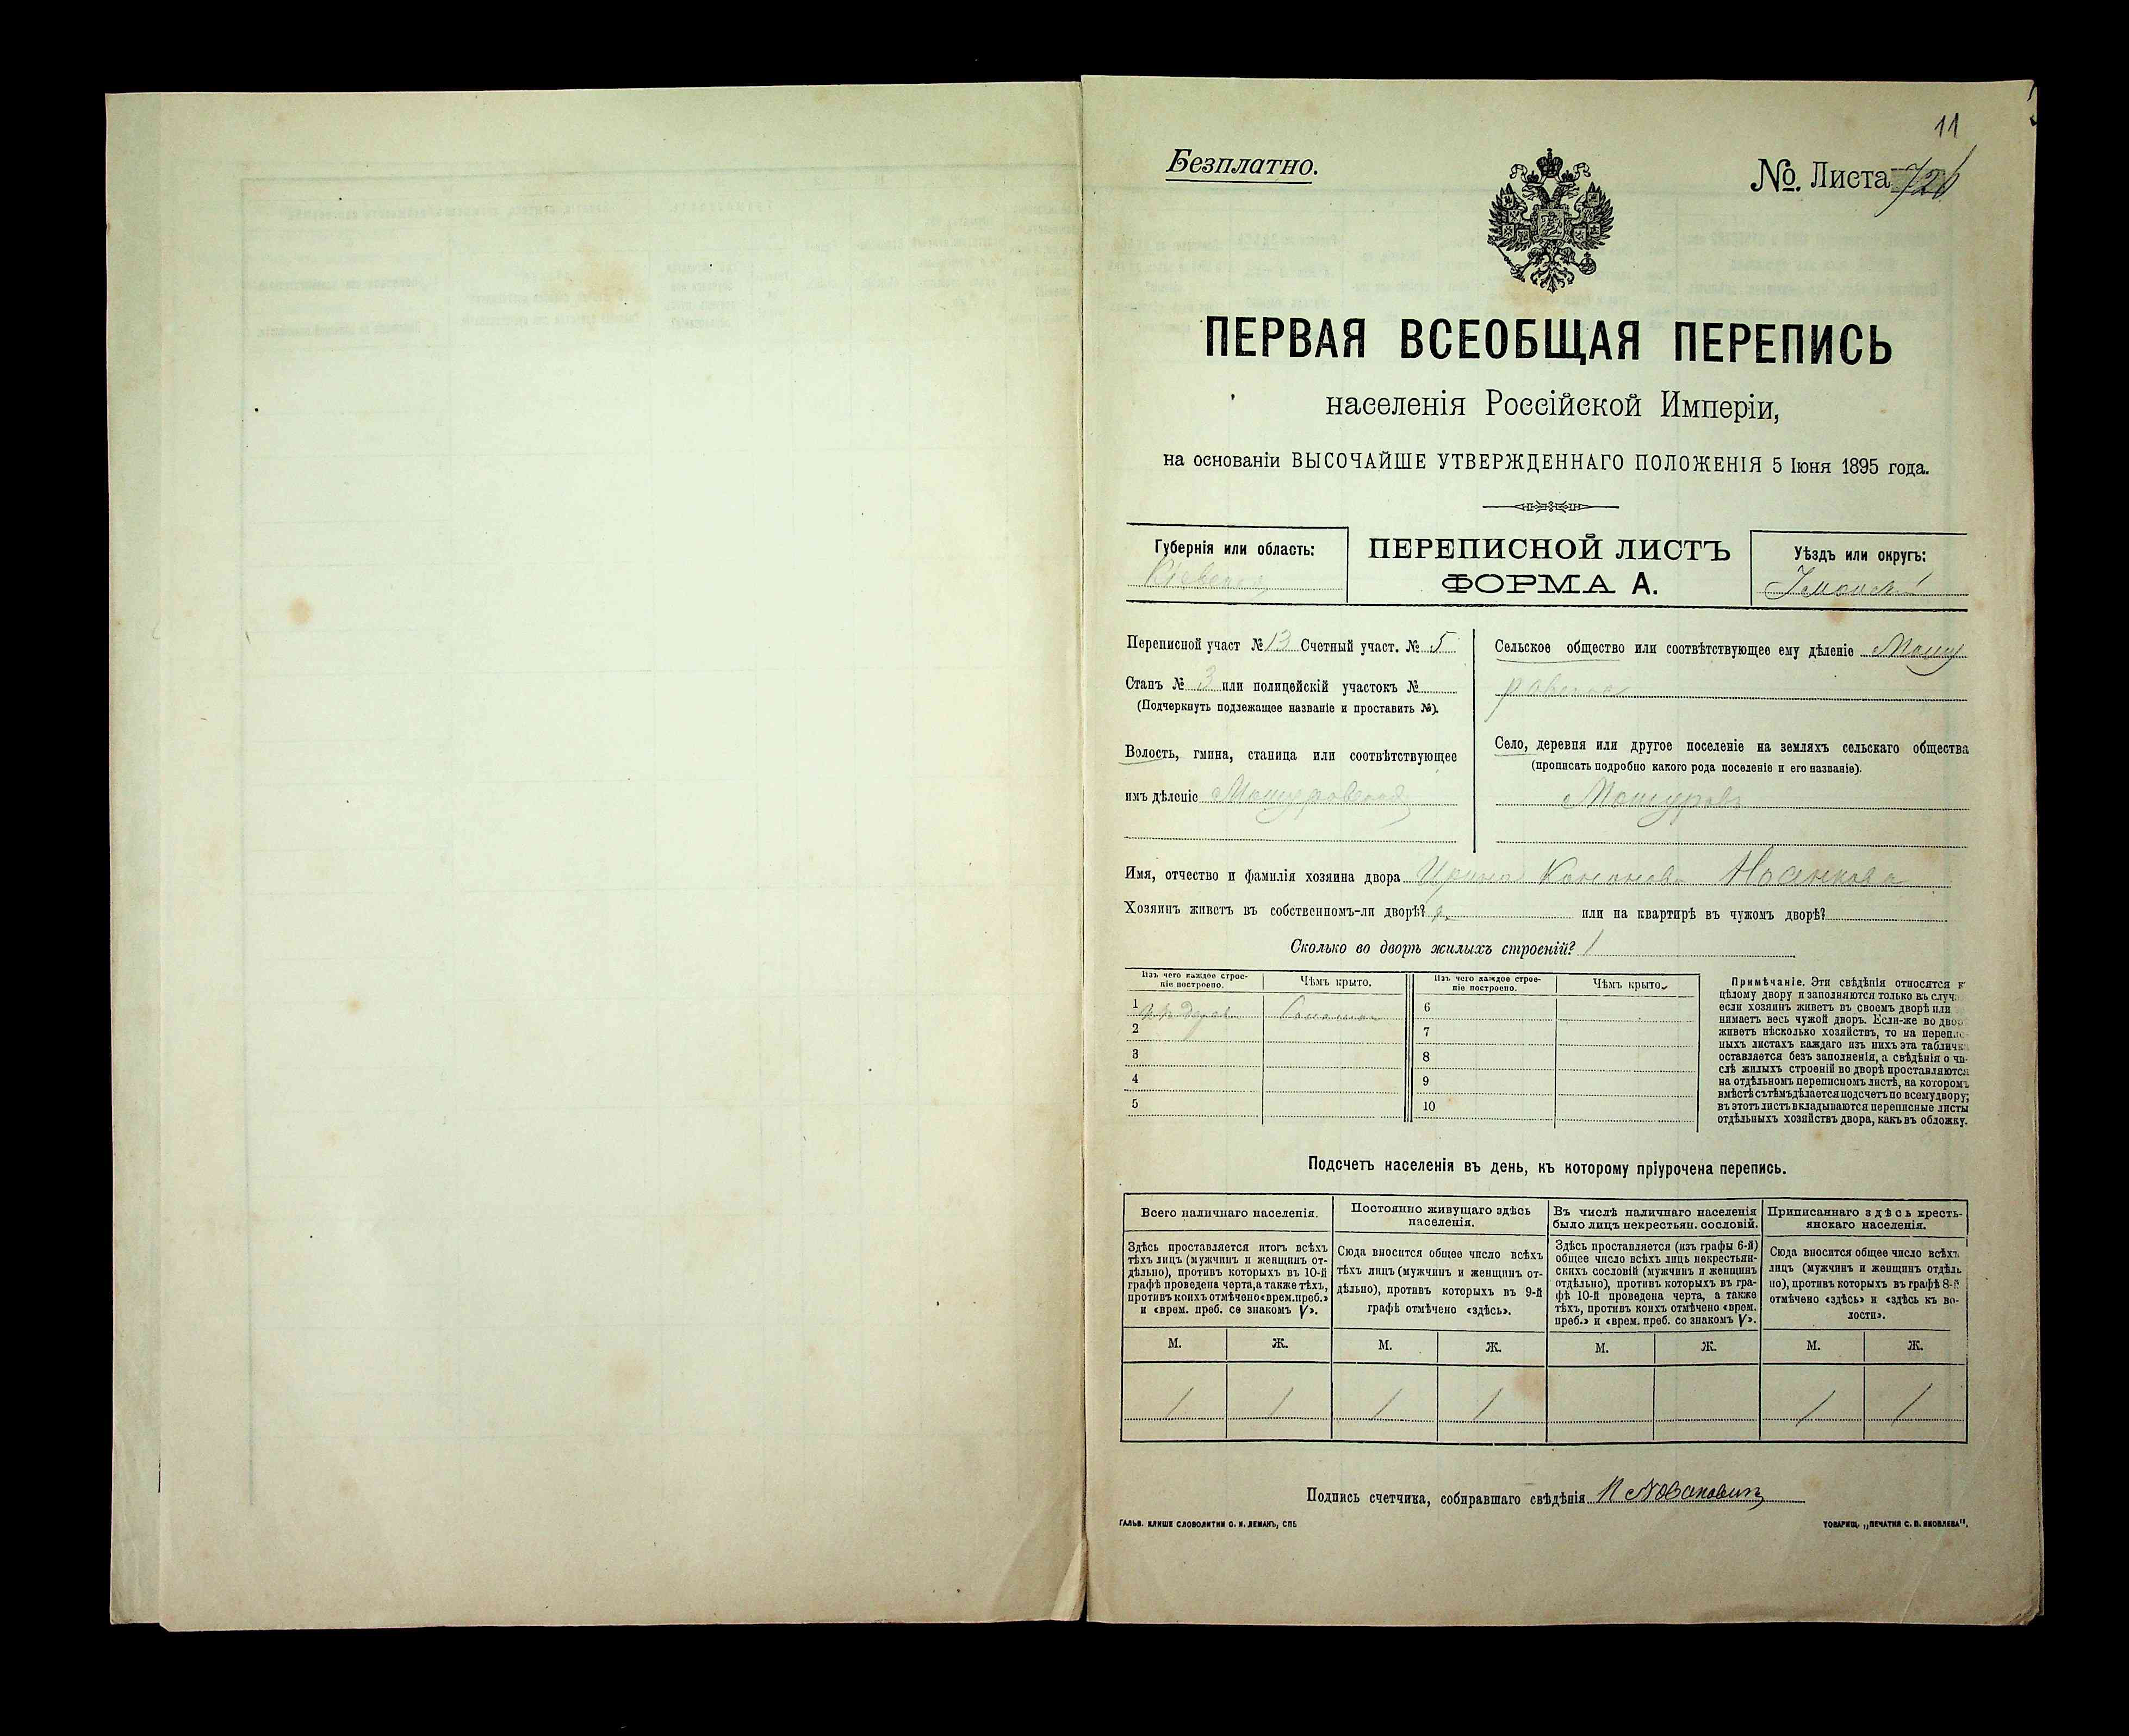 11
Безплатно.
№. Листа
ПЕРВАЯ ВСЕОБЩАЯ ПЕРЕПИСЬ
населенія Россійской Имперіи,
на основаніи ВЫСОЧАЙШЕ УТВЕРЖДЕННАГО ПОЛОЖЕНІЯ 5 Іюня 1895 года.
Губернія или область:
Кіевская
ПЕРЕПИСНОЙ ЛИСТЪ
ФОРМА А.
Уѣздъ или округъ:
Уманскій
Переписной участ № 13 Счетный участ. № 5
Станъ № 3 или полицейскій участокъ №
(Подчеркнуть подлежащее названіе и проставить №).
Волость, гмина, станица или соотвѣтствующее
имъ дѣленіе Машуровская
Сельское общество или соотвѣтствующее ему дѣленіе Машу
ровское
Село, деревня или другое поселеніе на земляхъ сельскаго общества
(прописать подробно какого рода поселеніе и его названіе).
Машуровъ
Имя, отчество и фамилія хозяина двора Ирина Кононова
Хозяинъ живетъ въ собственномъ-ли дворѣ? или на квартирѣ въ чужомъ дворѣ?
Сколько во дворѣ жилыхъ строеній? 1
Изъ чего каждое строе-
ніе построено.
Чѣмъ крыто.
Изъ чего каждое строе-
ніе построено.
Чѣмъ крыто.
1 Соломой 6
2 7
3 8
4 9
5 10
Примѣчаніе. Эти свѣдѣнія относятся к
цѣлому двору и заполняются только въ случ.
если хозяинъ живетъ въ своемъ дворѣ или
нимаетъ весь чужой дворъ. Если-же во дво
живетъ нѣсколько хозяйствъ, то на перепис
ныхъ листахъ каждаго изъ нихъ эта табличк
оставляется безъ заполненія, а свѣдѣнія о чи-
слѣ жилыхъ строеній во дворѣ проставляются
на отдѣльномъ переписномъ листѣ, на которомъ
вмѣстѣ сътѣмъ дѣлается подсчетъ по всему двору;
въ этотъ листъ вкладываются переписные листы
отдѣльныхъ хозяйствъ двора, какъ въ обложку.
Подсчетъ населенія въ день, къ которому пріурочена перепись.
Всего наличнаго населенія.
Здѣсь проставляется итогъ всѣхъ
тѣхъ лицъ (мужчинъ и женщинъ от-
дѣльно), противъ которыхъ въ 10-й
графѣ проведена черта, а также тѣхъ,
противъ коихъ отмѣчено «врем. преб.»
и «врем. преб. со знакомъ V».
Постоянно живущаго здѣсь
населенія.
Сюда вносится общее число всѣхъ
тѣхъ лицъ (мужчинъ и женщинъ от-
дѣльно), противъ которыхъ въ 9-й
графѣ отмѣчено «здѣсь».
Въ числѣ наличнаго населенія
было лицъ некрестьян. сословій.
Здѣсь проставляется (изъ графы 6-й)
общее число всѣхъ лицъ некрестьян-
скихъ сословій (мужчинъ и женщинъ
отдѣльно), противъ которыхъ въ гра-
фѣ 10-й проведена черта, а также
тѣхъ, противъ коихъ отмѣчено «врем.
преб.» и «врем. преб. со знакомъ V».
Приписаннаго здѣсь кресть-
янскаго населенія.
Сюда вносится общее число всѣхъ
лицъ (мужчинъ и женщинъ отдѣль
но), противъ которыхъ въ графѣ 8-й
отмѣчено «здѣсь» и «здѣсь къ во-
лости».
М. Ж. М. Ж. М. Ж. М. Ж.
1 1 1 1 1 1
Подпись счетчика, собиравшаго свѣдѣнія
ГАЛЬВ. КЛИШЕ СЛОВОЛИТНИ О. И. ЛЕМАНЪ, СПБ
ТОВАРИЩ. „ПЕЧАТНЯ С. П. ЯКОВЛЕВА".